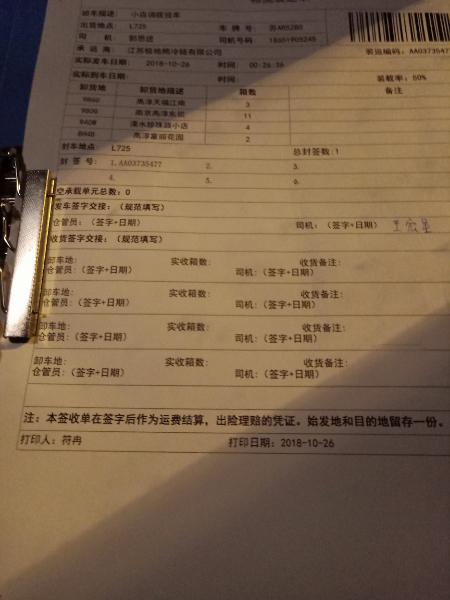 卸车描述: 小店调拨挂车
出货地点: L725 车牌号 苏AR52B0
司 机: 郭思述 司机号码 18651905245
承运商: 江苏极地熊冷链有限公司 装运编码: AA0373547
实际发车日期: 2018-10-26 时间: 00:26:36
实际到车日期: 时间: 装载率: 50%
卸货地 卸货地描述 箱数 备注
高淳天福江南 3
南京高淳东坝 11
溧水珍珠路小店 4
高淳富丽花园 2
封车地点: L725 总封签数:1
封签号: 1.AA03735477 2. 3.
4. 5. 6.
空承载单元总数: 0
发车签字交接:(规范填写)
仓管员:(签字+日期) 司机:(签字+日期)
收货签字交接:(规范填写)
卸车地: 实收箱数: 收货备注:
仓管员:(签字+日期) 司机:(签字+日期)
卸车地: 实收箱数: 收货备注:
仓管员:(签字+日期) 司机:(签字+日期)
卸车地: 实收箱数: 收货备注:
仓管员:(签字+日期) 司机:(签字+日期)
卸车地: 实收箱数: 收货备注:
仓管员:(签字+日期) 司机:(签字+日期)
注: 本签收单在签字后作为运费结算,出险理赔的凭证。始发地和目的地留存一份。
打印人: 符冉 打印日期: 2018-10-26